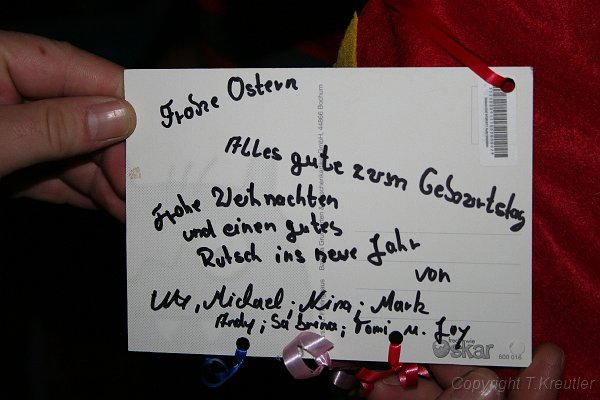 Frohe Ostern
Alles gute zum Geburtstag
Frohe Weihnachten
und einen gutes
Rutsch ins neue Jahr
von
Michael; Nina; Mark
Andy; Sabrina; Tomi u. Joy
GmbH, 44866 Bochum
frech wie
Oskar
600 016
Copyright T.Kreutler